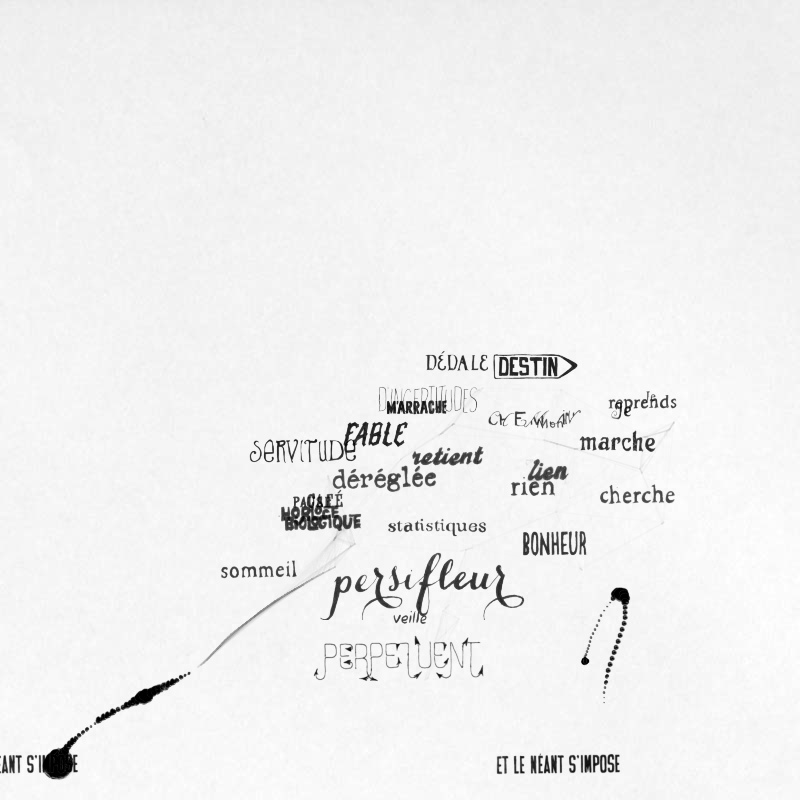 DÉDALE DESTIN
D'INCERTITUDES
M'ARRACHE
reprends
FABLE
marche
SERVITUDE
retient
déréglée
lien
rien
cherche
HORLOGE
BIOLOGIQUE
statistiques
BONHEUR
sommeil
persifleur
veille
PERPETUENT
ÉANT S'IMPOSE
ET LE NÉANT S'IMPOSE